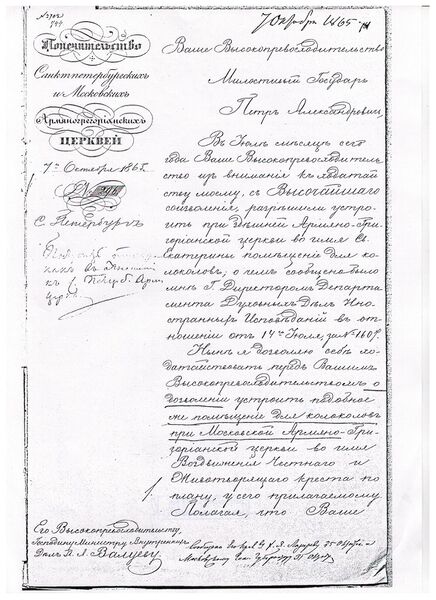 7 Октября 1865
Попечительство
Санктпетербургскихъ
и Московскихъ
Армяногрегоріанскихъ
ЦЕРКВЕЙ
7го Октября 1865.
№
С. Петербургъ
Ваше Высокопревосходительство
Милостивый Государь
Петръ Александровичъ,
Въ Іюлѣ мѣсяцѣ сего
года Ваше Высокопревосходитель-
ство изъ вниманія къ ходатай-
ству моему, съ Высочайшаго
соизволенія, разрѣшили устро-
ить при здѣшней Армяно-Гри-
горіанской церкви во имя Св.
Екатерины помѣщеніе для ко-
локоловъ, о чемъ сообщено было
мнѣ Г. Директоромъ Департа-
мента Духовныхъ Дѣлъ Ино-
странныхъ Исповѣданій въ от-
ношеніи отъ 14го Іюля, за № 1609.
Нынѣ я дозволяю себѣ хо-
датайствовать передъ Вашимъ
Высокопревосходительствомъ о
дозволеніи устроить подобное
же помѣщеніе для колоколовъ
при Московской Армяно-Гри-
горіанской церкви во имя
Воздвиженія Честнаго и
Животворящаго креста по
плану, у сего прилагаемому.
Полагая, что Ваше
Его Высокопревосходительству,
Господину Министру Внутреннихъ
Дѣлъ П. А. Валуеву.